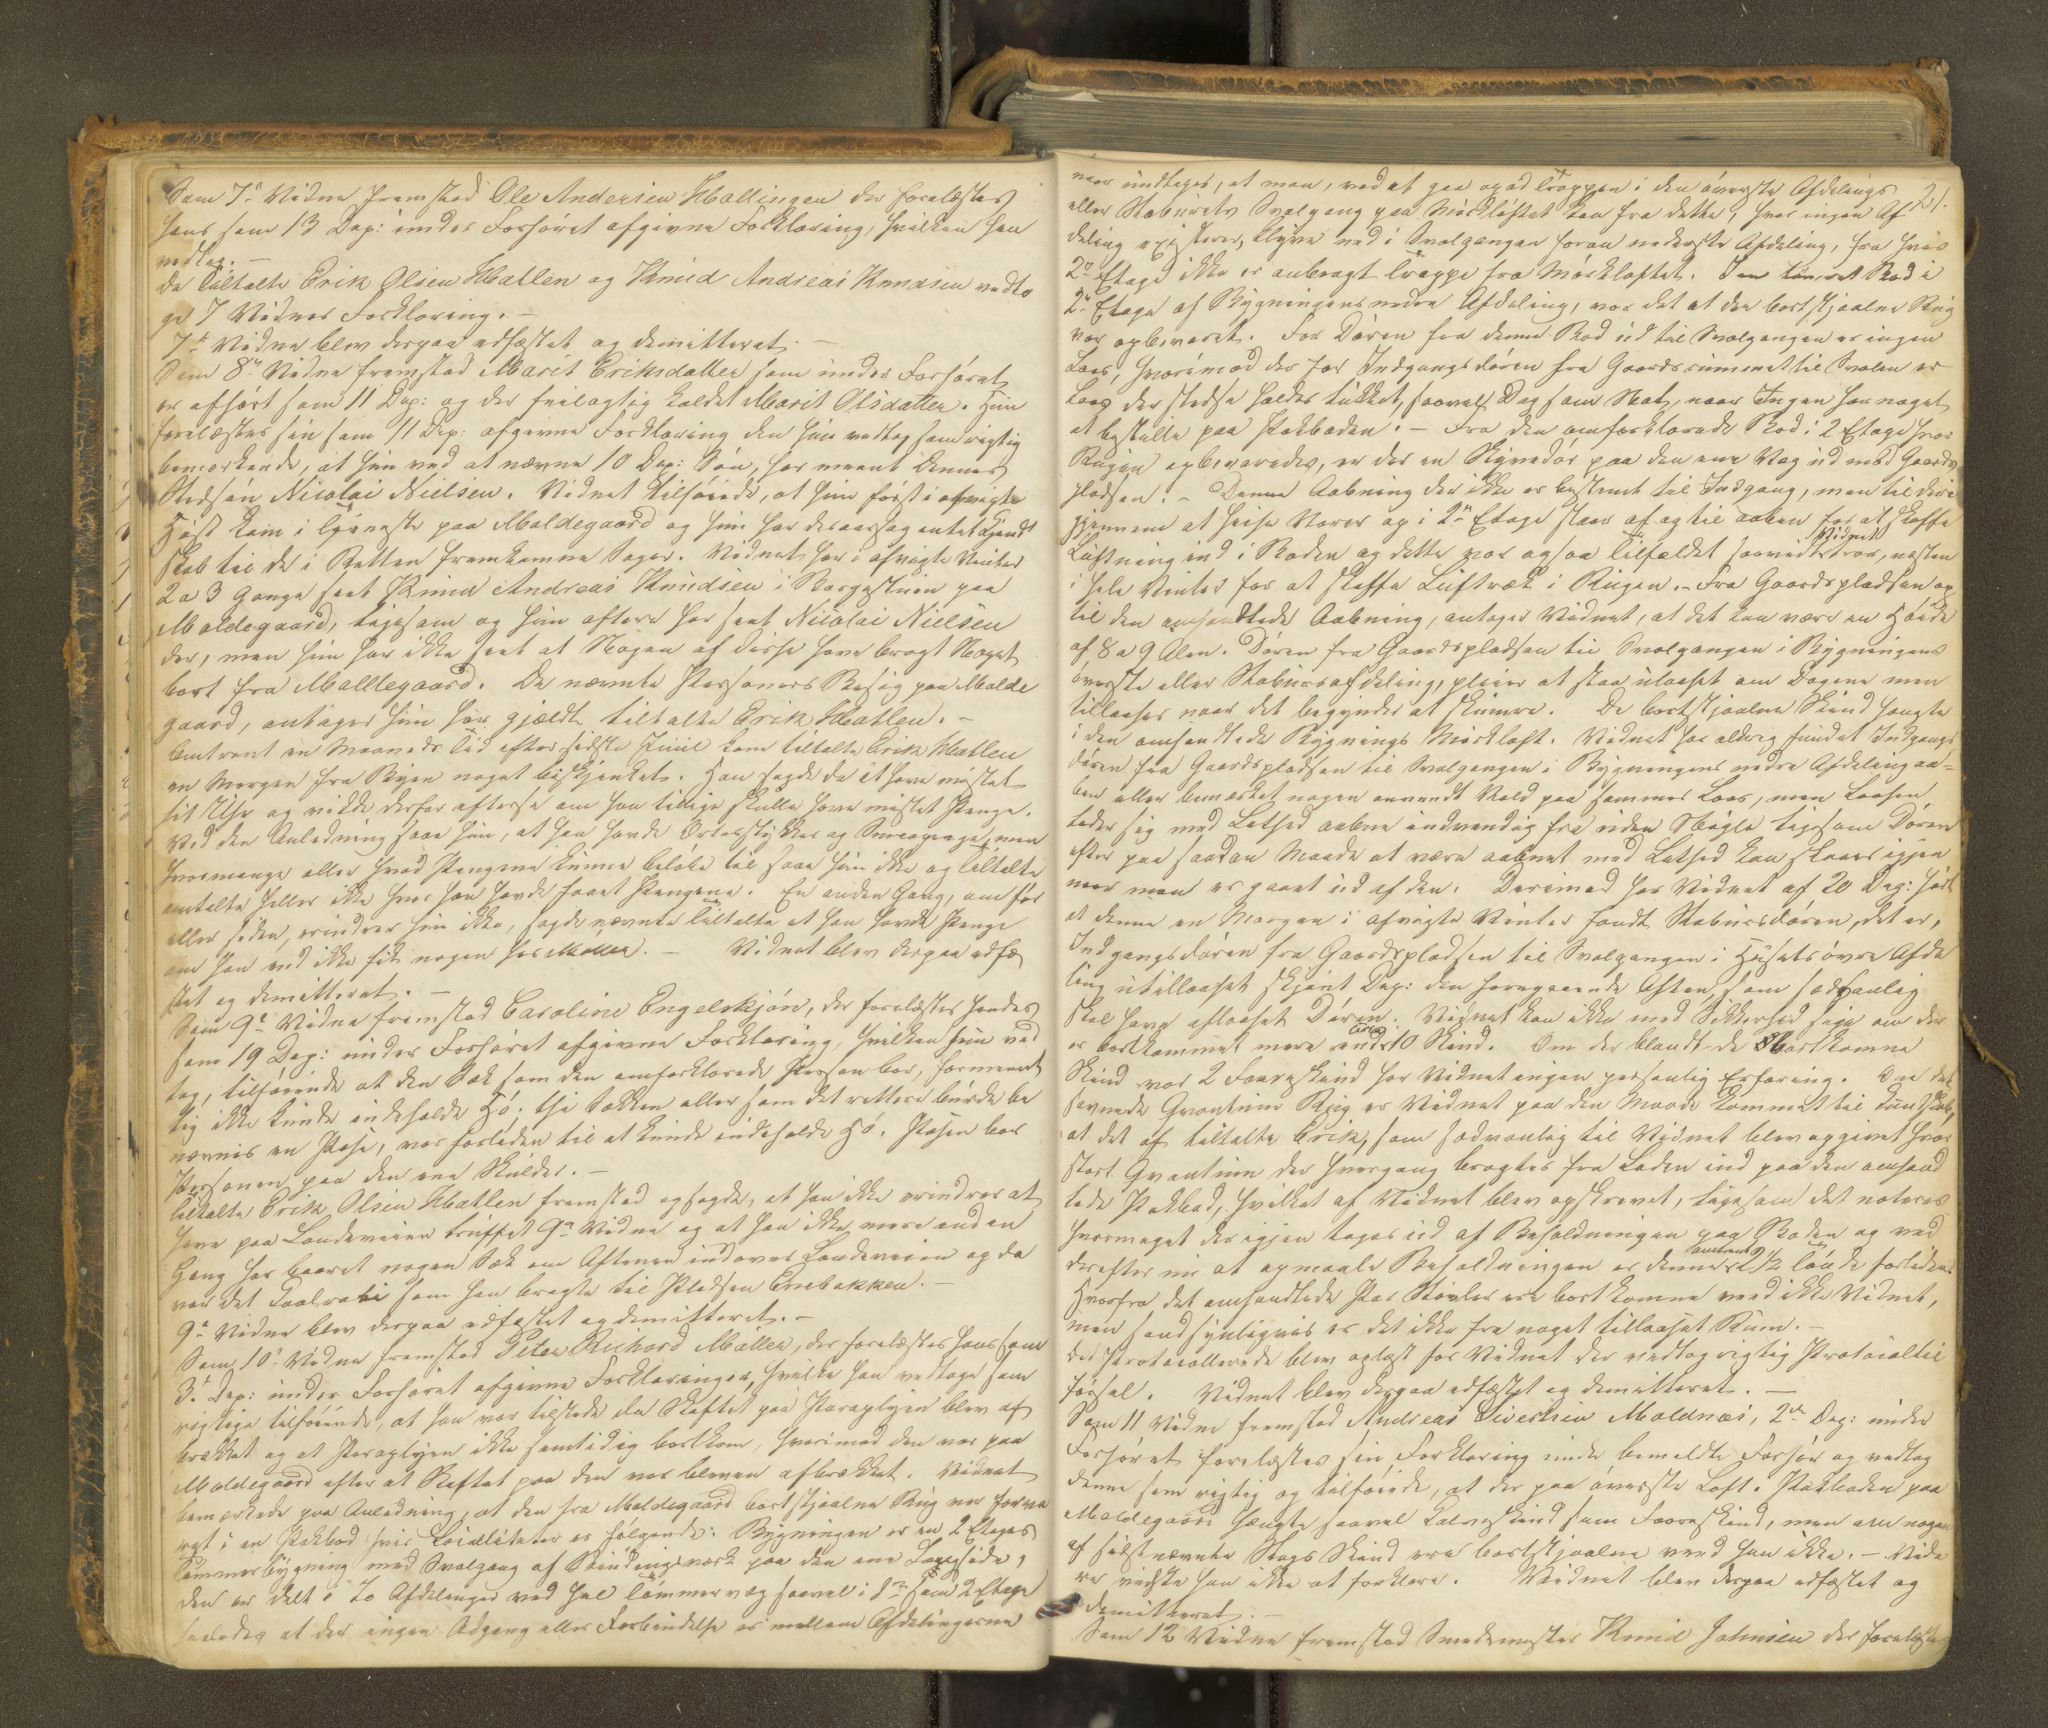 Som 7de Vidne fremstod Ole Andersen Hallingen der forelæstes
hans som 13 Dep: under Forhøret afgivne Forklaring, hvilken han
vedtog. –
De Tiltalte Erik Olsen Hatlen og Knud Andreas Knudsen vedto
ge 7 Vidnes Forklaring. –
7de Vidne blev derpaa edfæstet og demitteret. –
Som 8de Vidne fremstod Marit Eriksdatter som under Forhøret
er afhørt som 11 Dep: og der feilagtig kaldet Marit Olsdatter. Hun
forelæstes sin som 11 Dep: afgivne Forklaring den hun vedtog som rigtig
bemærkende, at hun ved at nævne 10 Dep: Søn, har meent dennes
Stedsøn Nicolai Nielsen. Vidnet tilføiede, at hun først i afvigte
Høst kom i Tjeneste paa Moldegaard og hun har desaarsag intet Kjend
skab til de i Retten fremkomne Sager. Vidnet har i afvigte Vinter
2 a 3 Gange seet Knud Andreas Knudsen i Borgestuen paa
Moldegaard, ligesom og hun oftere har seet Nicolai Nielsen
der, men hun har ikke seet at Nogen af disse have bragt Noget
bort fra Moldegaard. De nævnte Personers Besøg paa Molde
gaard, antager hun har gjældt tiltalte Erik Hatlen. –
Omtrent en Maaneds Tid efter sidste Juul kom tiltalte Erik Hatlen
en Morgen fra Byen noget beskjenket. Han sagde da at have mistet
sit Uhr og vilde derfor eftersee om han tillige skulle have mistet Penge.
Ved den Anledning saae hun, at han havde Ortestykker og Smaapenge, men
hvormange eller hvad Pengene kunne beløbe til saae hun ikke og Tiltalte
omtalte heller ikke hvor han havde faaet Pengene. En anden Gang, om før
eller siden, erindrer hun ikke, sagde nævnte Tiltalte at han havde Penge
om han end ikke fik nogen hos Møller. – Vidnet blev derpaa edfæ
stet og demitteret. –
Som 9de Vidne fremstod Caroline Engelskjøn, der forelæstes hendes
som 19 Dep: under Forhøret afgivne Forklaring, hvilken hun ved
tog, tilføiende at den Sæk som den omforklarede Person bar, formeent
lig ikke kunde indeholde Hø; thi Sækken eller som det rettere burde be
nævnes en Pose, var for liden til at kunde indeholde Hø. Posen bar
Personen paa den ene Skulder. –
Tiltalte Erik Olsen Hatlen fremstod og sagde, at han ikke erindrer at
have paa Landeveien truffet 9de Vidne og at han ikke mere end en
Gang har baaret nogen Sæk om Aftenen indover Landeveien og da
var det Kaalrabi som han bragte til Pladsen Enebakken. –
9de Vidne blev derpaa edfæstet og demitteret. –
Som 10de Vidne fremstod Peter Richard Møller, der forelæstes hans som
3de Dep: under Forhøret afgivne Forklaringer, hvilke han vedtog som
rigtige tilføiende, at han var tilstede da Skaftet paa Paraplyen blev af
brækket og at Paraplyen ikke samtidig bortkom, hvorimod den var paa
Moldegaard efter at Skaftet paa den var bleven afbrækket. Vidnet
bemærkede paa Anledning, at den fra Moldegaard bortstjaalne Rug var forva
ret i en Pakbod hvis Localiteter er følgende: Bygningen er en 2 Etages
Tømmerbygning med Svalgang af Bindingsværk paa den ene Langside,
den er delt i to Afdelinger ved heel Tømmervæg saavel i 1ste som 2 Etage
saaledes at der ingen Adgang eller Forbindelse er mellem Afdelingerne
21.
naar undtages, at man, ved at gaa op ad Trappen i den øverste Afdelings
eller Staburets Svalgang paa Mørkloftet kan fra dette, hvor ingen Af
deling existerer, klyve ned i Svalgangen foran nederste Afdeling, fra hvis
2den Etage ikke er anbragt Trappe fra Mørkloftet. I en Bod i
2den Etage af Bygningens nedre Afdeling, var det at den bortstjaalne Rug
var opbevaret. For Døren fra denne Bod ud til Svalgangen er ingen
Laas, hvorimod der for Indgangsdøren fra Gaardsrummet til Svalen er
Laas der stedse holdes lukket, saavel Dag som Nat, naar Ingen har noget
at bestille paa Pakboden. – Fra den omforklarede Bod i 2 Etage hvor
Rugen opbevaredes, er der en Skyvedør paa den ene Væg ud mod Gaards
pladsen. – Denne Aabning der ikke er bestemt til Indgang, men til deri
gjennem at heise Varer op i 2den Etage staar af og til aaben for at skaffe
Luftning ind i Boden og dette var ogsaa Tilfældet saavidt Vidnet tror, næsten
i hele Vinter for at skaffe Lufttræk i Rugen. – Fra Gaardspladsen op
til den omhandlede Aabning, antager Vidnet, at det kan være en Høide
af 8 a 9 Alen. Døren fra Gaardspladsen til Svalgangen i Bygningens
øverste eller Staburs afdeling, pleier at staa ulaaset om Dagene men
tillaases naar det begynder at skumre. De bortstjaalne Skind hængte
i den omhandlede Bygnings Mørkloft. Vidnet har aldrig fundet Indgangs
døren fra Gaardspladsen til Svalgangen i Bygningens nedre Afdeling aa=
ben eller bemærket nogen anvendt Vold paa sammes Laas, men Laasen
lader sig med Lethed aabne indvendig fra uden Nøgle ligesom Døren
efter paa saadan Maade at være aabnet med Lethed kan slaaes igjen
naar man er gaaet ud af den. Derimod har Vidnet af 20 Dep: hørt
at denne en Morgen i afvigte Vinter fandt Stabursdøren, det er,
Indgangsdøren fra Gaardspladsen til Svalgangen i Husets øvre Afde
ling utillaaset skjønt Dep: den foregaaende Aften, som sædvanlig
skal have aflaaset Døren. Vidnet kan ikke med Sikkerhed sige om der
er bortkommet mere end 10 Skind. Om der blandt de bortkomne
Skind var 2 Faareskind har Vidnet ingen personlig Erfaring. Om det
savnede Qvantum Rug er Vidnet paa den Maade kommet til Kundskab,
at det af tiltalte Erik, som sædvanlig til Vidnet blev opgivet hvor
stort Qvantum der hvergang bragtes fra Laden ind paa den omhand
lede Pakbod, hvilket af Vidnet blev opskrevet, ligesom det noteres
hvormeget der igjen tages ud af Beholdningen paa Boden og ved
derefter nu at opmaale Beholdningen er denne omtrent 2 1/2 Tønde forliden.
Hvorfra det omhandlede Par Støvler ere bortkomne veed ikke Vidnet,
men sandsynligvis er det ikke fra noget tillaaset Rum. –
Det Protocollerede blev oplæst for Vidnet der vedtog rigtig Protocoltil
førsel. Vidnet blev derpaa edfæstet og demitteret. –
Som 11 Vidne fremstod Andreas Sivertsen Moldnæs, 2den Dep: under
Forhøret forelæstes sin Forklaring under bemeldte Forhør og vedtog
denne som rigtig og tilføiede, at der paa øverste Loft i Pakboden paa
Moldegaard hængte saavel Kalveskind som Faareskind, men om nogen
af sidstnævnte Slags Skind ere bortstjaalne veed han ikke. – Vide
re vidste han ikke at forklare. Vidnet blev derpaa edfæstet og
demitteret. –
Som 12 Vidne fremstod Smedemester Knud Johnsen der forelæstes